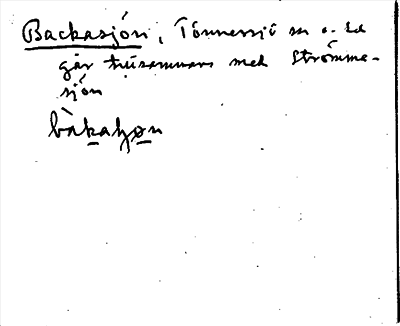 Backasjön, Tönnersjö sn o. hd
går tillsammans med Strömme-
sjön
bàkaʃøn